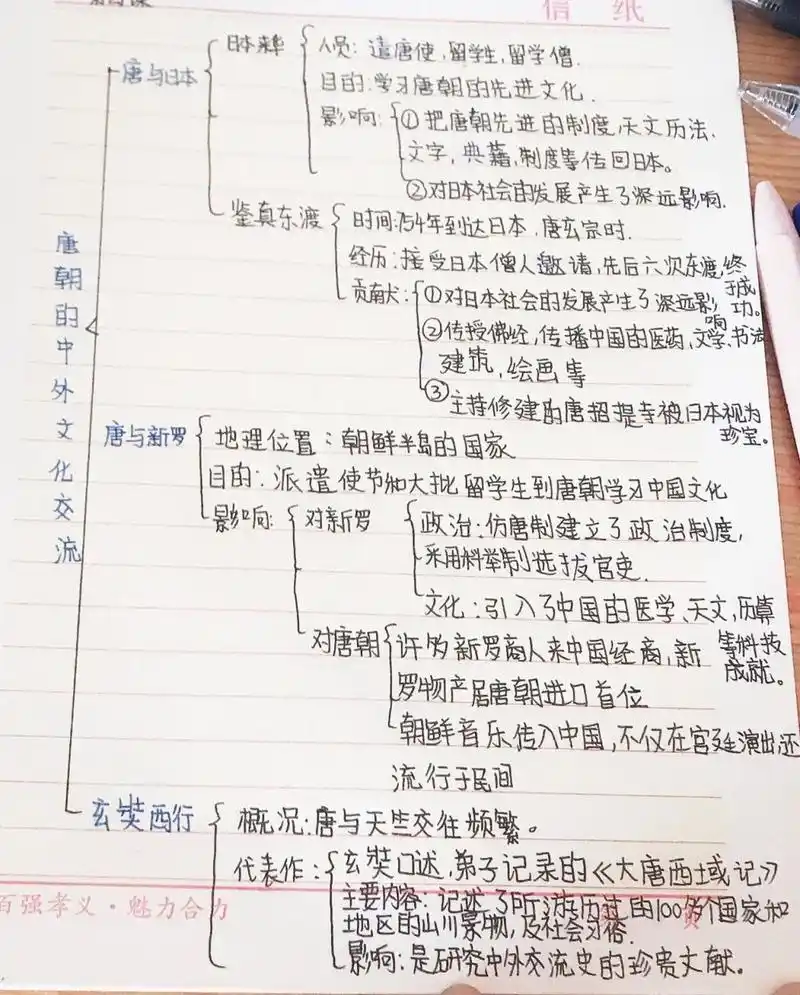 信 纸
唐朝的中外文化交流
唐与日本
日本来华
人员：遣唐使，留学生，留学僧.
目的：学习唐朝的先进文化.
影响：①把唐朝先进的制度，天文历法，
文字，典藉，制度等传回日本。
②对日本社会的发展产生了深远影响.
鉴真东渡
时间：754年到达日本，唐玄宗时.
经历：接受日本僧人邀请，先后六次东渡，终
于成功。
贡献：①对日本社会的发展产生了深远影
响
②传授佛经，传播中国的医药，文学，书法
建筑，绘画等
③主持修建的唐招提寺被日本视为
珍宝。
唐与新罗
地理位置：朝鲜半岛的国家
目的：派遣使节和大批留学生到唐朝学习中国文化
影响：
对新罗
政治：仿唐制建立了政治制度，
采用科举制选拔官吏.
文化：引入了中国的医学、天文，历算
等科技
成就。
对唐朝
许多新罗商人来中国经商，新
罗物产居唐朝进口首位
朝鲜音乐传入中国，不仅在宫廷演出，还
流行于民间
玄奘西行
概况：唐与天竺交往频繁。
代表作：玄奘口述，弟子记录的《大唐西域记》
主要内容：记述了所游历过的100多个国家和
地区的山川景物，及社会习俗.
影响：是研究中外交流史的珍贵文献。
百强孝义·魅力合力